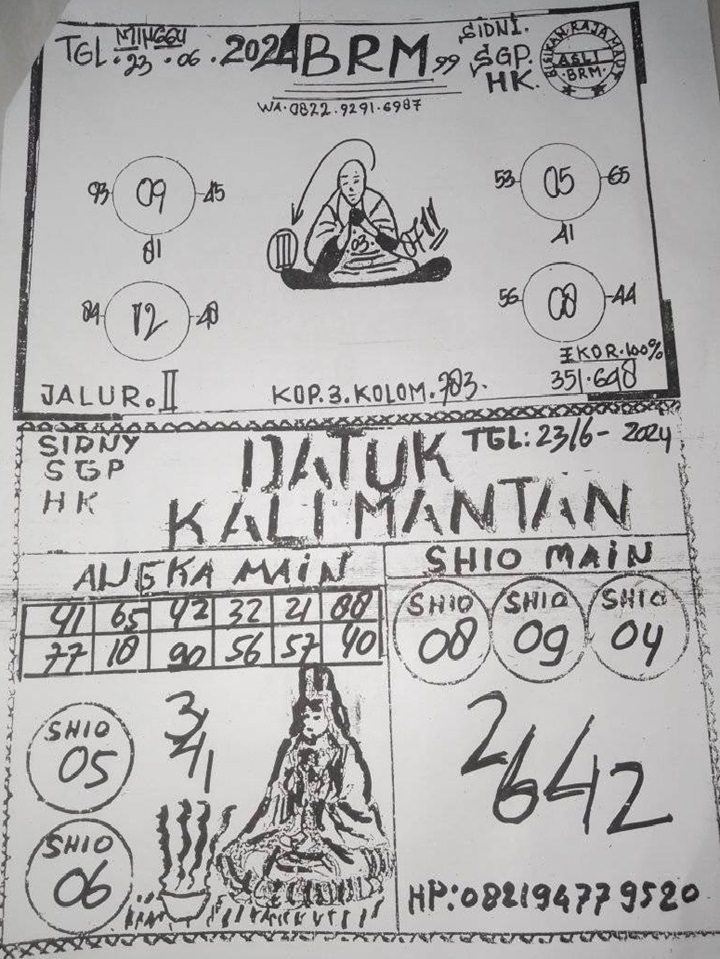 MINGGU
TGL. 23.06.2024
BRM 99
SIDNI.
SGP.
HK.
BISIKAN RAJA MAUT
ASLI
BRM
WA.0822.9291.6987
93 09 45
81
12 48
53 05 65
41
56 08 44
III
03
EKOR.100%
351.698
JALUR. II
KOP.3.KOLOM.703.
SIDNY
SGP
HK
DATUK
KALIMANTAN
TGL:23/6- 2024
ANGKA MAIN
41 65 42 32 21 88
77 18 90 56 57 40
SHIO MAIN
SHIO
08
SHIO
09
SHIO
04
SHIO
05
SHIO
06
3
4
1
2642
HP:082194779520